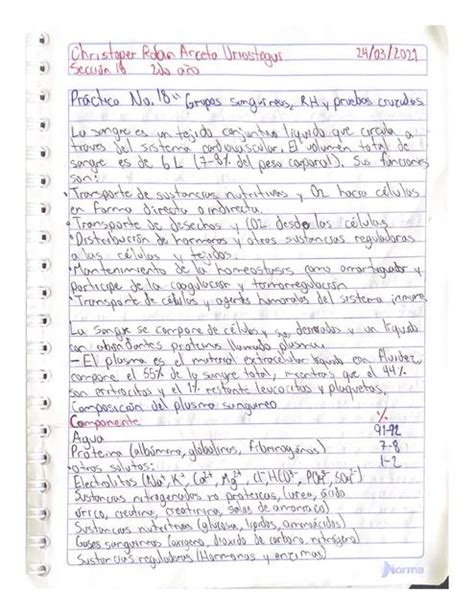 Christoper Robin Arceta Uriostegui 24/03/2021
Sección 18 2do año
Práctica No. 18 "Grupos sanguineos, RH y pruebas cruzadas
La sangre es un tejido conjuntivo liquido que circula a
traves del sistema cardiovascular. El volumen total de
sangre es de 6L (7-8% del peso corporal). Sus funciones
son:
• Transporte de sustancias nutritivas y O2 hacia células
en forma directa o indirecta.
• Transporte de desechos y CO2 desde las células
• Distribución de hormonas y otras sustancias reguladoras
a las células y tejidos.
• Mantenimiento de la homeostasis como amortiguador y
participe de la coagulación y termorregulación
• Transporte de células y agentes humorales del sistema inmune
La sangre se compone de células y sus derivados y un liquido
con abundantes proteinas llamado plasma.
- El plasma es el material extracelular liquido con fluidez,
compone el 55% de la sangre total, mientras que el 44%
son eritrocitos y el 1% restante leucocitos y plaquetas.
Composición del plasma sanguineo
Componente %
Agua 91-92
Proteina (albúmina, globulinas, fibrinogénas) 7-8
• otros solutos: 1-2
Electrolitos (Na⁺, K⁺, Ca²⁺, Mg²⁺, Cl⁻, HCO³⁻, PO₄³⁻, SO₄²⁻)
Sustancias nitrogenadas no proteicas (urea, ácido
úrico, creatina, creatinina, sales de amoniaco)
Sustancias nutritivas (glucosa, lipidos, aminoácidos)
Gases sanguineos (oxigeno, dioxido de carbono, nitrógeno)
Sustancias reguladoras (Hormonas y enzimas)
Norma